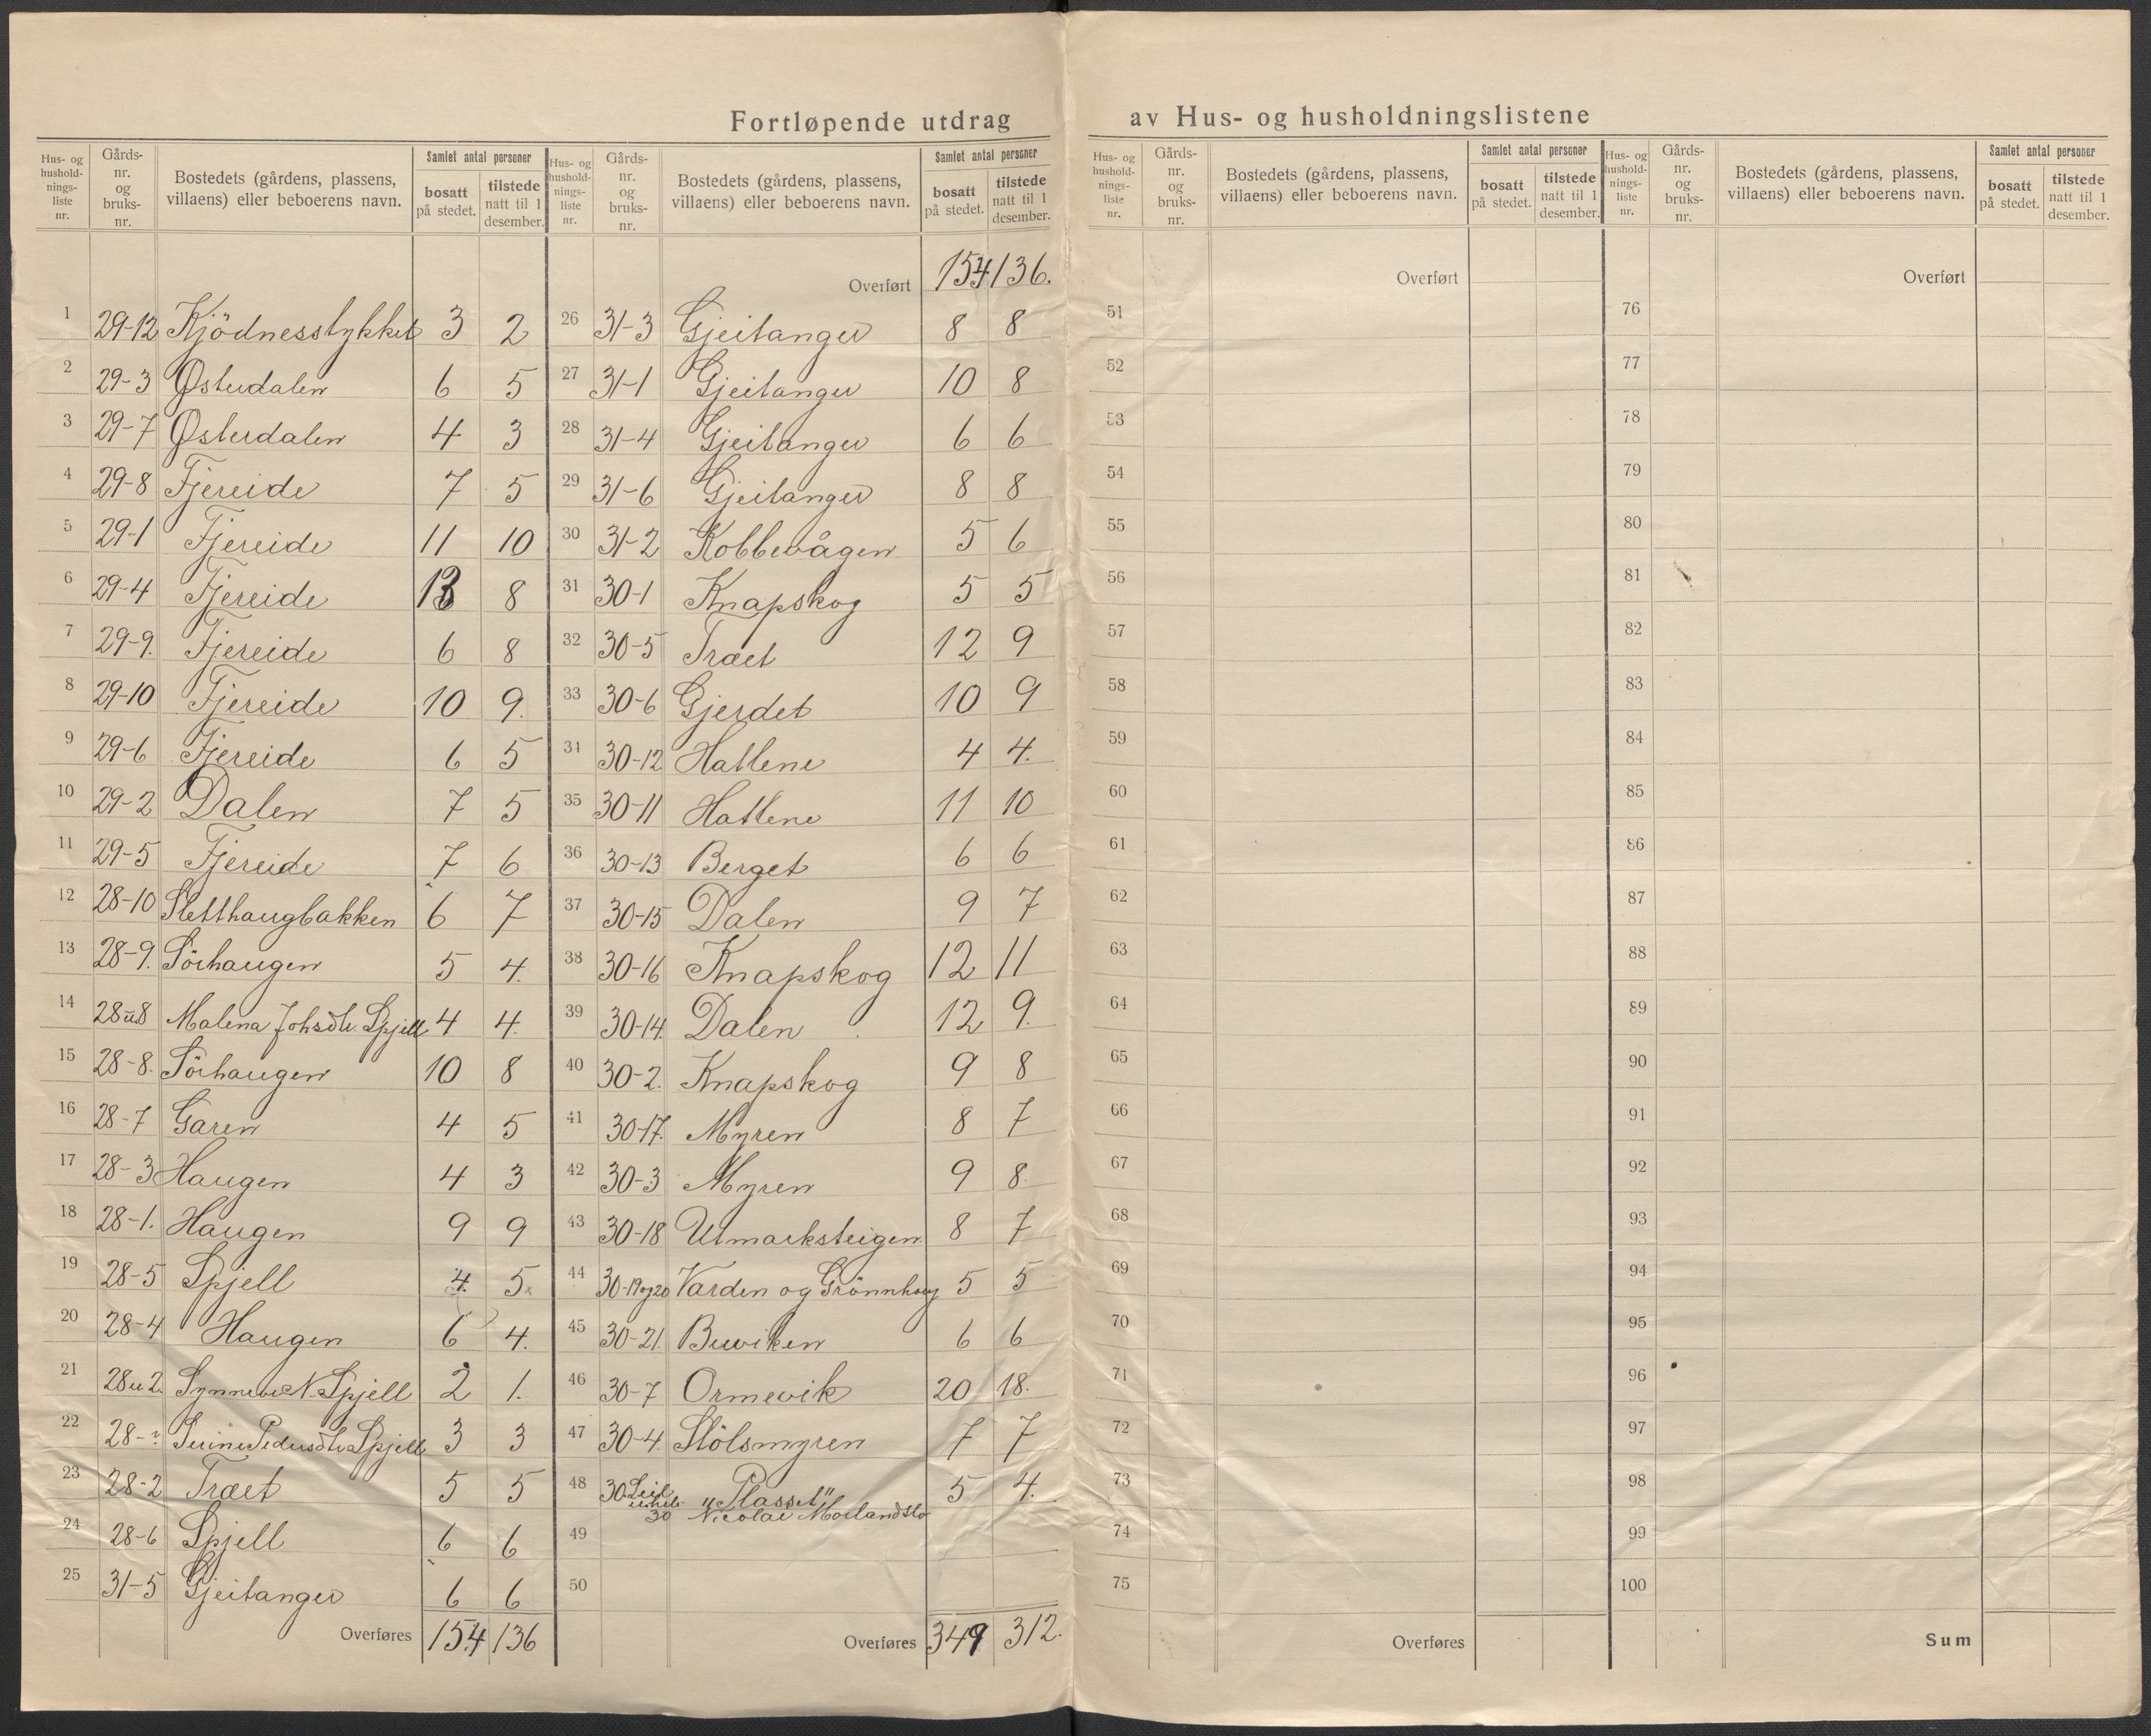 Fortløpende utdrag av Hus- og husholdningslistene
Hus- og hushold-nings-liste nr. Gårds-nr. og bruks-nr. Bostedets (gårdens, plassens, villaens) eller beboerens navn. Samlet antal personer bosatt på stedet. tilstede natt til 1 desember.
1 29-12 Kjödnesstykket 3 2
2 29-3 Østerdalen 6 5
3 29-7 Østerdalen 4 3
4 29-8 Fjereide 7 5
5 29-1 Fjereide 11 10
6 29-4 Fjereide 13 8
7 29-9. Fjereide 6 8
8 29-10 Fjereide 10 9.
9 29-6 Fjereide 6 5
10 29-2 Dalen 7 5
11 29-5 Fjereide 7 6
12 28-10 Sletthaugbakken 6 7
13 28-9. Sörhaugen 5 4.
14 28u8 Malena Johsdtr. Spjell 4 4.
15 28-8. Sörhaugen 10 8
16 28-7 Garen 4 5
17 28-3 Haugen 4 3
18 28-1. Haugen 9 9
19 28-5 Spjell 4. 5
20 28-4 Haugen 6 4.
21 28u2. Synneve N. Spjell 2 1.
22 28-? Pedersdtr Spjell 3 3
23 28-2 Træt 5 5
24 28-6 Spjell 6 6
25 31-5 Gjeitanger 6 6
Overføres 154 136
Hus- og hushold-nings-liste nr. Gårds-nr. og bruks-nr. Bostedets (gårdens, plassens, villaens) eller beboerens navn. Samlet antal personer bosatt på stedet. tilstede natt til 1 desember.
Overført 154 136.
26 31-3 Gjeitanger 8 8
27 31-1 Gjeitanger 10 8
28 31-4 Gjeitanger 6 6
29 31-6 Gjeitanger 8 8
30 31-2 Kobbevågen 5 6
31 30-1 Knapskog 5 5
32 30-5 Træet 12 9
33 30-6 Gjerdet 10 9
34 30-12 Hatlene 4 4.
35 30-11 Hatlene 11 10
36 30-13 Berget 6 6
37 30-15 Dalen 9 7
38 30-16 Knapskog 12 11
39 30-14. Dalen 12 9.
40 30-2. Knapskog 9 8
41 30-17. Myren 8 7
42 30-3 Myren 9 8.
43 30-18 Utmarksteigen 8 7
44 30-19og20 Varden og Grönnhaug 5 5
45 30-21. Buviken 6 6
46 30-7 Ormevik 20 18.
47 30-4. Stölsmyren 7 7
48 30 "Plasset" 5 4.
30 Nicolai
49
50
Overføres 349 312.
Hus- og hushold-nings-liste nr. Gårds-nr. og bruks-nr. Bostedets (gårdens, plassens, villaens) eller beboerens navn. Samlet antal personer bosatt på stedet. tilstede natt til 1 desember.
Overført
51
52
53
54
55
56
57
58
59
60
61
62
63
64
65
66
67
68
69
70
71
72
73
74
75
Overføres
Hus- og hushold-nings-liste nr. Gårds-nr. og bruks-nr. Bostedets (gårdens, plassens, villaens) eller beboerens navn. Samlet antal personer bosatt på stedet. tilstede natt til 1 desember.
Overført
76
77
78
79
80
81
82
83
84
85
86
87
88
89
90
91
92
93
94
95
96
97
98
99
100
Sum